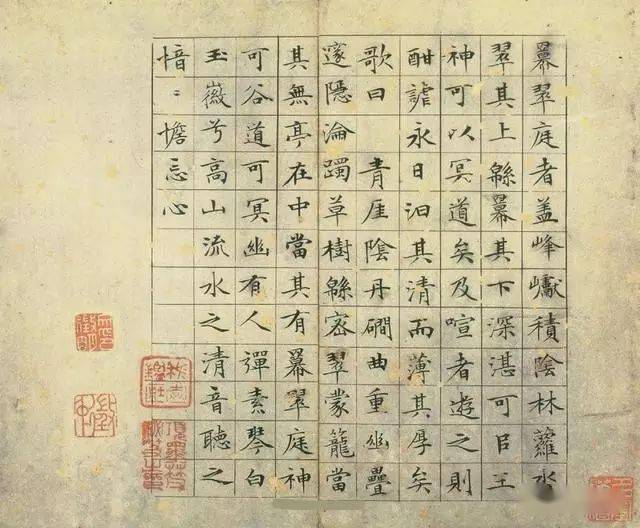 羃翠庭者蓋峰巘積陰林蘿沓
翠其上緜羃其下深湛可㠯王
神可以冥道矣及喧者遊之則
酣謔永日汩其清而薄其厚矣
歌曰　青厓陰丹磵曲重幽疊
邃隱淪躅草樹緜密翠蒙籠當
其無亭在中當其有羃翠庭神
可谷道可冥幽有人彈素琴白
玉徽兮高山流水之清音聽之
愔〻憺忘心